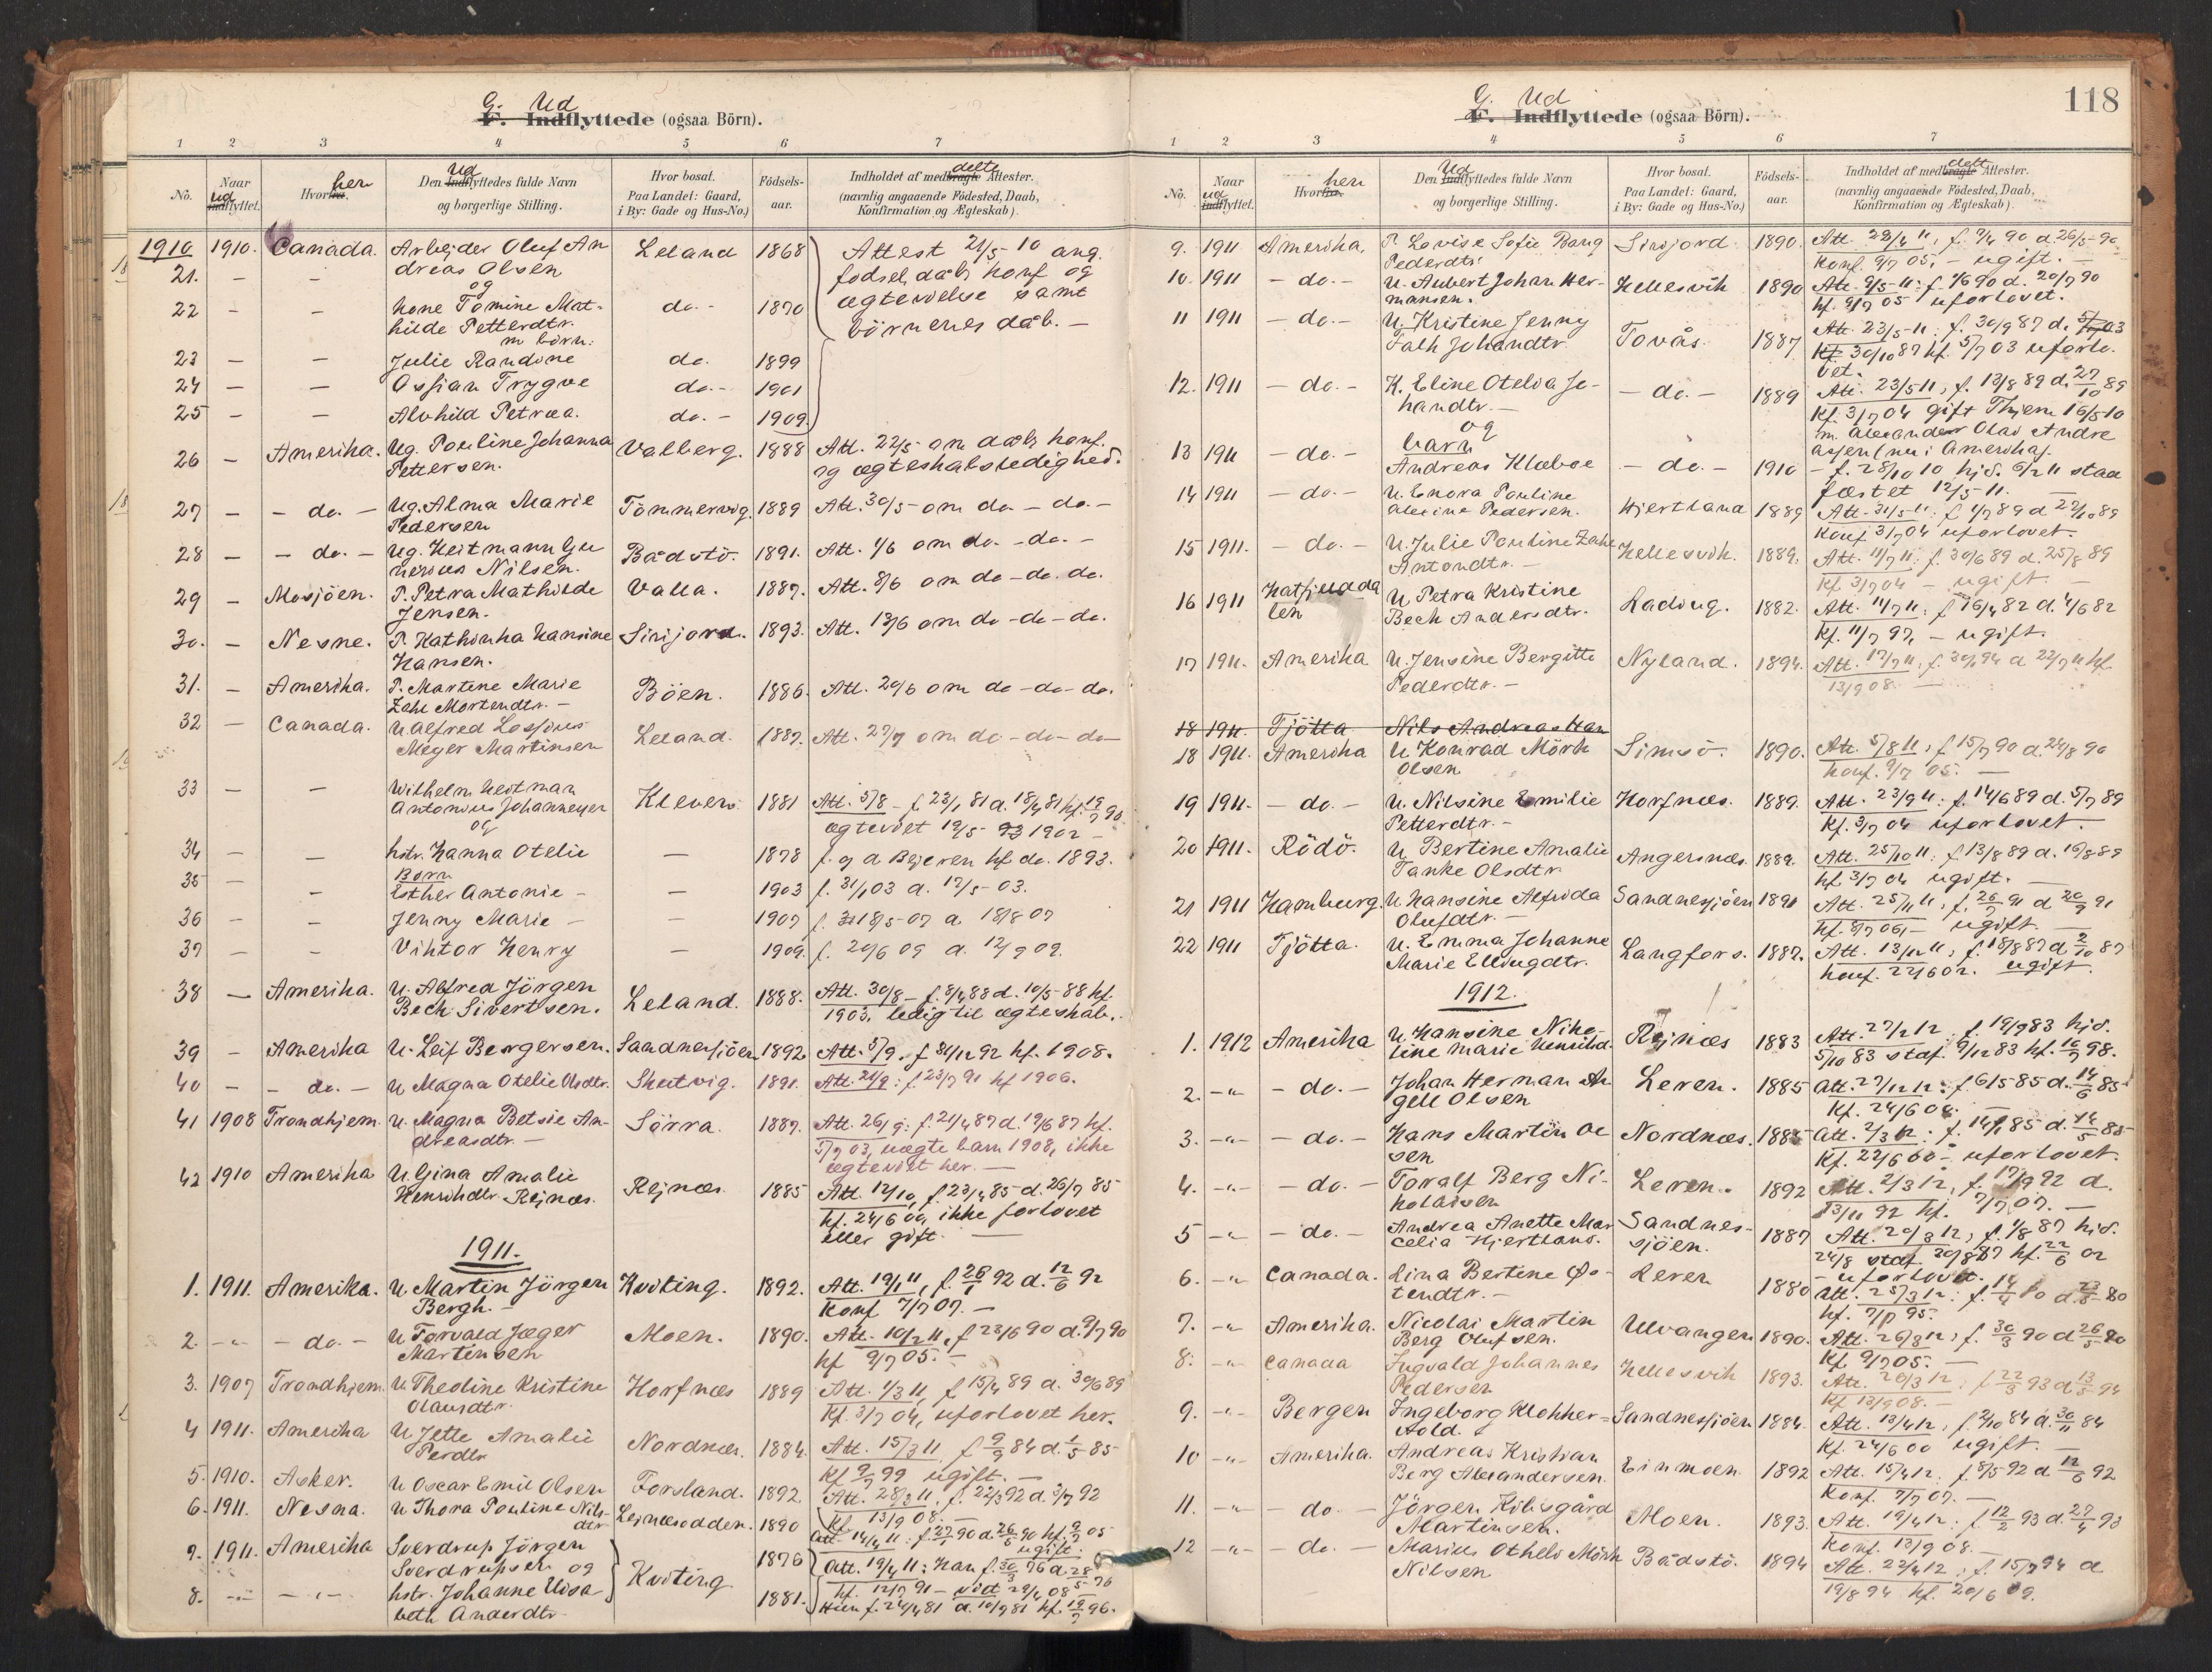 G. Ud
F. Indflyttede (ogsaa Börn).
1 2 3 4 5 6 7
No. Naar udflyttet. Hvorhen Den Udflyttedes fulde Navn og borgerlige Stilling. Hvor bosat. Paa Landet: Gaard, i By: Gade og Hus-No.) Födsels-aar. Indholdet af meddelte Attester. (navnlig angaaende Födested, Daab, Konfirmation og Ægteskab).
1910 1910. Canada. Arbejder Oluf An Leland 1868 Attest 21/5 10 ang.
21. - - dreas Olsen födsel, dåb, konf og
og
22 - - kone Tomine Mat- do. - 1870 ægtevielse samt
hilde Petterdtr. börnenes dåb. -
m börn:
23 - - Julie Randine do. 1899
24 - - Ossian Trygve do. - 1901
25 - - Alvhild Petrea. do. - 1909.
26 - Amerika. Ug. Pouline Johanna Valberg. 1888 Att. 22/5 om dåb, konf.
Pettersen. og ægteskabsledighed.
27 - - do. - Ug. Alma Marie Tömmervig. 1889 Att. 30/5 - om do - do. -
Pedersen
28 - - do. - Ug. Heitmann Gu Bådstö. 1891. Att. 1/6 om do. - do. -
nerius Nilsen.
29 - Mosjöen. P. Petra Mathilde Valla. 1887. Att. 8/6 om do - do. do.
Jensen.
30. - Nesne. P. Kathinka Hansine Sirijord. 1893. Att. 13/6 om do - do - do.
Hansen.
31. - Amerika. P. Martine Marie Böen. 1886. Att. 20/6 om do - do - do.
Zahl Mortendtr. -
32 - Canada. U Alfred Lossius Leland. 1887. Att. 27/7 om do - do - do -
Meyer Martinsen
33 - - Wilhelm Heitman Kleven 1881 Att. 5/8 - f. 23/1 81 d. 18/4 81 kf.
Antonius Johannesen ægteviet 19/5 1902 -
og
34 - - hstr. Hanna Otelie - 1878 f. og d Bejeren kf do. 1893.
Börn
35 - - Esther Antonie - - 1903 f. 31/1 03 d. 17/5 - 03.
36 - - Jenny Marie - - 1907 f. 18/5 - 07 d. 18/8 07
37 - - Viktor Henry - 1909. f. 20/6 09 d. 12/9 09.
38 - Amerika. U. Alfred Jörgen Leland. 1888. Att. 30/8 - f. 8/4 88 d. 10/5 - 88 kf.
Bech Sivertsen. 1903, ledig til ægteskab.
39 - Amerika U. Leif Bergersen. Sandnessjöen 1892. Att. 5/9. f 31/12 92 kf. 1908.
40 - - do. - U Magna Otelie Olsdtr. Skeitvig. 1891. Att. 21/9: f 23/7 91 kf 1906.
41 1908 Trondhjem. U. Magna Betsie An- Sörra. 1887. Att. 26/9: f. 21/4 87 d. 19/6 87 kf.
dreasdtr. - 5/7 03, uægte barn 1908, ikke
ægteviet her. -
42 1910 Amerika U. Gina Amalie Rejnæs. 1885 Att. 12/10, f. 23/4 85 - d. 26/7 85
Henrikdtr. Rejnæs. kf. 24/6 00, ikke forlovet
eller gift. -
1911.
1. 1911. Amerika. U. Martin Jörgen Kviting. 1892. Att. 19/1 11, f. 26/1 92 d. 12/6 92
Bergh. - Konf 7/7 07. -
2. -"- - do. - U Torvald Jæger Moen. 1890. Att. 10/2 11, f 23/6 90 d. 9/7 90
Martinsen kf 9/7 05. -
3. 1907 Trondhjem. U. Theoline Kristine Horfnæs 1889 Att. 1/3 11, f 15/4 89 d. 30/6 89
Olausdtr. Kf. 3/7 04, uforlovet her.
4 1911. Amerika U Jette Amalie Nordnæs. 1884. Att. 15/3 11, f 9/9 84 d. 1/5 85
Perdtr Kf 9/7 99 ugift. -
5. 1910. Asker. U Oscar Emil Olsen Forsland. 1892 Att. 28/3 11. f. 22/3 92 d. 3/7 92
6. 1911. Nesna. U Thora Pouline Nils- Lejnæsodden. 1890 kf 13/9 08. -
dtr Att 14/4 11: f 27/1 90 d. 26/5 90 kf. 9/7 05
ugift.
7. 1911. Amerika Sverdrup Jörgen 1876 Att. 19/4 11: Han f. 30/3 76 d 28/5 76
Sverdrupsen og Kviting kf. 12/7 91 - viet
8. -"- - " - hstr. Johanne Elisa 1881. Hun f. 24/4 81 d. 10/7 81 kf. 19/7 96.
beth Anderdtr
118
G. Ud
F. Indflyttede (ogsaa Börn).
1 2 3 4 5 6 7
No. Naar udflyttet. Hvorhen Den Udflyttedes fulde Navn og borgerlige Stilling. Hvor bosat. Paa Landet: Gaard, i By: Gade og Hus-No.) Födsels-aar. Indholdet af meddelt Attester. (navnlig angaaende Födested, Daab, Konfirmation og Ægteskab).
9. 1911 Amerika. P. Lovise Sofie Bang Sirijord. 1890. Att 28/4 11, f 7/4 90 d. 26/5 - 90
Pederdtr. Konf. 9/7 05, - ugift. -
10. 1911 - do. - U. Aubert Johan Her- Hellesvik 1890 Att. 9/5 - 11: f 1/6 90 d. 20/7 90
mansen. kf. 9/7 05 uforlovet.
11 1911 - do. - U. Kristine Jenny Tovås. 1887 Att. 23/5 - 11: f. 30/9 87 d.
Falk Johandtr. 30/10 87 kf. 5/7 03 uforlo-
vet.
12. 1911 - do. - K. Eline Otelia Jo- - do. - 1889 Att. 23/5 11, f. 13/8 89 d. 27/10 89
handtr. - Kf. 3/7 04 gift Thjem 16/5 10
og m. Alexander Olai Andre
barn asjen (nu i Amerika).
13 1911 - do. - Andreas Klæboe - do. - 1910 - f. 28/10 10 hjd. 6/2 11 stad
14 1911 - do. - U. Enora Pouline fæstet 12/5 - 11. -
Alexine Pedersen. Hjertland 1889 Att. 31/5 - 11: f 1/7 89 d 27/10 89
Konf 3/7 04 uforlovet. -
15 1911. - do. - U. Julie Pouline Zahl Hellesvik. 1889. Att. 11/7 11: f. 30/6 89 d. 25/8 89
Antondtr. - Kf. 3/7 04 - ugift. -
16 1911 Hatfjelddalen U Petra Kristine Lading. 1882. Att. 14/7 11: f 16/4 82 d. 4/6 82
Bech Andersdtr. Kf. 11/7 97, - ugift.
17 1911. Amerika U. Jensine Bergitte Nyland. 1894. Att. 17/7 11, f. 30/1 94 d 22/7 kf.
Pederdtr. - 13/9 08. -
18 1911. Tjötta Nils Andreas Han
18 1911. Amerika U Konrad Mörk Simsö. 1890. Att. 5/8 11, f 15/7 90 d. 24/8 90
Olsen konf. 9/7 05. -
19 1911. - do. - U. Nilsine Emilie Horfnæs. 1889. Att. 23/9 11: f. 14/6 89 d. 5/7 89
Petterdtr. - Kf. 3/7 04 uforlovet. -
20 1911. Rödö. U Bertine Amalie Angersnæs. 1889. Att. 25/10 11. f 13/8 89 d. 19/8 89
Tanke Olsdtr. kf 3/7 04 ugift. -
21 1911 Hamburg. U. Hansine Alfrida Sandnessjöen 1891 Att. 25/11 11, f. 26/7 91 d 20/9 91
Olufdtr. - kf. 8/7 06, - ugift. -
22 1911 Tjötta. U. Emma Johanne Langfors. 1887. Att. 13/12 11, f. 18/8 87 d. 2/10 87
Marie Ellingdtr. konf. 22/6 02. ugift.
1912.
1. 1912 Amerika U Hansine Niko- Rejnæs 1883 Att. 27/2 12, f. 19/9 83 hjd.
line Marie Henrikd. 5/10 83 staf. 9/12 83 kf. 10/7 98.
2. -"- - do. - Johan Herman An Leren. 1885 Att. 27/12 12: f 6/5 85 d. 14/6 85
gell Olsen Kf. 24/6 00. -
3. -"- - do. - Hans Martin Ol Nordnæs. 1885 Att. 2/3 12: f. 14/1 85 d. 14/5 85
sen Kf. 22/6 00 - uforlovet.
4. -"- - do. - Toralf Berg Ni- Leren. 1892 Att. 2/3 12, f. 17/9 92 d.
kolaisen 13/11 92 kf. 7/7 07. -
5 -"- - do. - Andrea Anette Mar Sandnes- 1887 Att. 20/3 12, f. 1/8 87 hjd.
celia Hjertlaus. sjöen. 24/8 staf. 30/8 87 kf. 22/6 02
6. -"- Canada. Lina Bertine Ø- Leren 1880 - uforlovet.
tendtr. - Att. 25/3 12: f. 14/4 80 d. 23/5 80
kf. 7/7 95.
7. -"- Amerika. Nicolai Martin Ulvangen 1890. Att. 26/3 12, f. 30/3 90 d 26/5 90
Berg Olufsen. Kf. 9/7 05. -
8. -"- Canada Ingvald Johannes Hellesvik 1893. Att. 20/3 12: f 22/3 93 d 13/5 94
Pedersen Kf 13/9 08. -
9. -"- Bergen Ingeborg Klokker- Sandnessjöen 1884. Att. 13/4 12, f. 2/10 84 d. 30/11 84
vold. Kf. 24/6 00 ugift. -
10 -"- Amerika. Andreas Kristian Einmoen 1892 Att. 15/4 12. f 8/5 92 d 12/6 92
Berg Alexandersen. Konf. 7/7 07. -
11. -"- - do. - Jörgen Kilsgård Moen. 1893. Att. 19/4 12: f 12/2 93 d. 27/4 93
Martinsen. Konf. 13/9 08. -
12 -"- - do. - Marius Othelo Mörk Bådstö. 1894 Att. 22/4 12: f. 15/7 94 d
Nilsen 19/8 94 kf. 20/6 09.